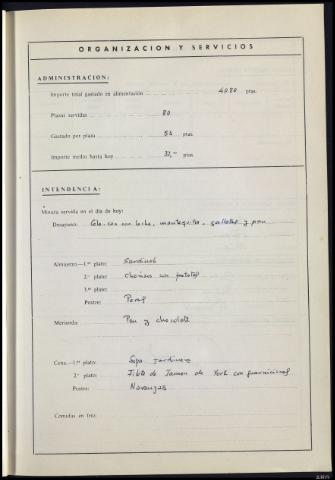 ORGANIZACION Y SERVICIOS
ADMINISTRACION:
Importe total gastado en alimentación 4080 ptas.
Plazas servidas 80
Gastado por plaza 51 ptas.
Importe medio hasta hoy 37,- ptas
INTENDENCIA:
Minuta servida en el día de hoy:
Desayuno: con leche, mantequilla, galletas y pan
Almuerzo.—1.er plato: Sardinas
2.º plato: con patatas
3.er plato:
Postre: Peras
Merienda: Pan y chocolate
Cena.—1.er plato: Sopa jardinera
2.º plato: de Jamon de York con guarniciones
Postre: Naranjas
Comidas en frío: